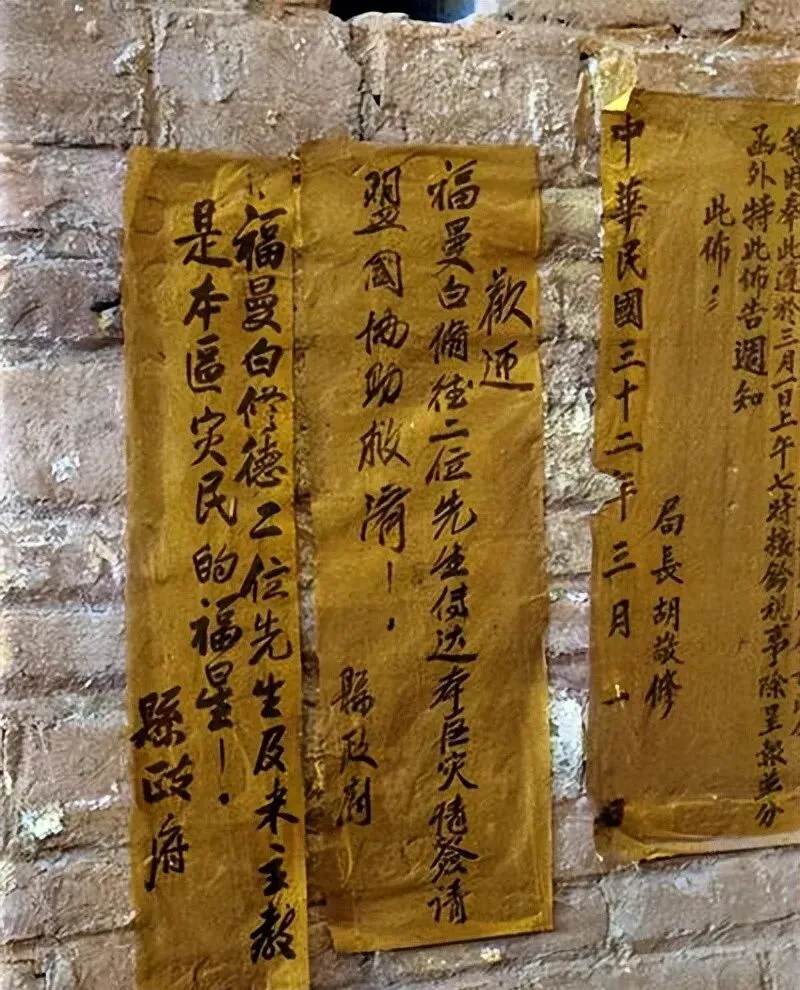 等因奉此遵於三月一日上午七時接鈐視事除呈報並分
函外特此佈告週知
此佈
局長胡敬修
中華民國三十二年三月 十 日
歡迎
福曼白脩德二位先生传达本区灾情發请
盟國協助救濟！
縣政府
福曼白修德二位先生及来主教
是本區灾民的福星！
縣政府